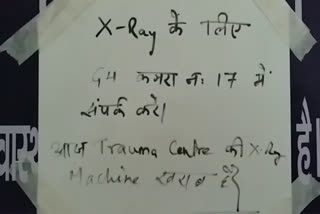 X-Ray के लिए
G4 कमरा नः 17 में
संपर्क करे।
आज Trauma Centre की X-Ray
Machine खराब है